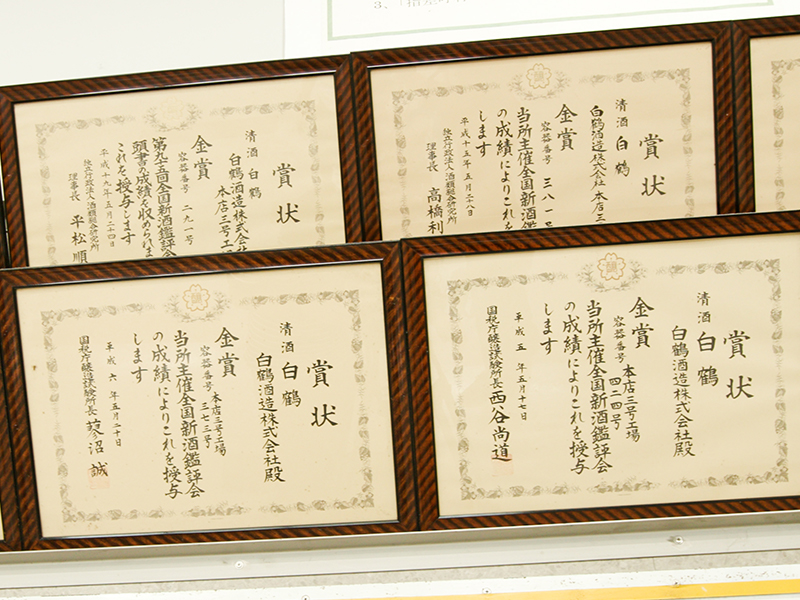 賞状
清酒 白鶴
白鶴酒造株式会社
本店三号工
金賞
容器番号 二九一号
第九十五回全国新酒鑑評会
頭書の成績を収められま
これを授与します
平成十九年五月二十四日
独立行政法人酒類総合研究所
理事長 平松順
賞状
清酒 白鶴
白鶴酒造株式会社 本店三
金賞
容器番号 三八一号
当所主催全国新酒鑑
の成績によりこれを
します
平成十五年五月二八日
独立行政法人酒類総合研究所
理事長 高橋利
賞状
清酒 白鶴
白鶴酒造株式会社殿
金賞
本店三号工場
容器番号 三七三号
当所主催全国新酒鑑評会
の成績によりこれを授与
します
平成六年五月二十日
国税庁醸造試験所長 蓼沼誠
賞状
清酒 白鶴
白鶴酒造株式会社殿
金賞
本店三号工場
容器番号 四二四号
当所主催全国新酒鑑評会
の成績によりこれを授与
します
平成五年五月十七日
国税庁醸造試験所長 西谷尚道